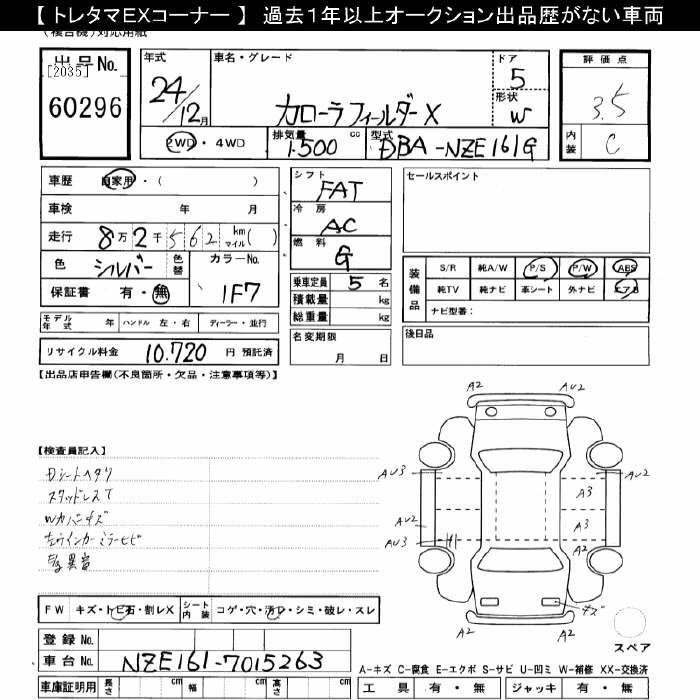 【トレタマEXコーナー】 過去1年以上オークション出品歴がない車両
(複合機)対応用紙
出品No.
[2035]
60296
年式
24/12月
車名・グレード
カローラフィールダーX
ドア
5
形状
W
評価点
3.5
内装
C
2WD・4WD
排気量
1500 cc
型式
DBA-NZE161G
車歴 自家用・( )
車検 年 月
走行 8万2千562 km マイル( )
色 シルバー 色替
カラーNo.
1F7
保証書 有・無
シフト
FAT
冷房
AC
燃料
G
乗車定員 5 名
積載量 kg
総重量 kg
セールスポイント
装備品
S/R 純A/W P/S P/W ABS
純TV 純ナビ 革シート 外ナビ エアB
ナビ型番:
モデル年式 年 ハンドル 左・右 ディーラー・並行
リサイクル料金 10.720 円 預託済
名変期限
月 日
後日品
【出品店申告欄(不良箇所・欠品・注意事項等)】
A2 AU2
【検査員記入】
Dシートヘタリ
スタッドレスT
Wカバーキズ
左ウインカーミラーヒビ
異音
AU3 AU2
A3
AU2 A3
AU3 A2
キズ
A2 A2
スペア
FW キズ・トビ石・割レX シート内装 コゲ・穴・汚レ・シミ・破レ・スレ
登録No.
車台No. NZE161-7015263
A-キズ C-腐食 E-エクボ S-サビ U-凹ミ W-補修 XX-交換済
車庫証明用 長さ cm 幅 cm 高さ cm
工具 有・無 ジャッキ 有・無